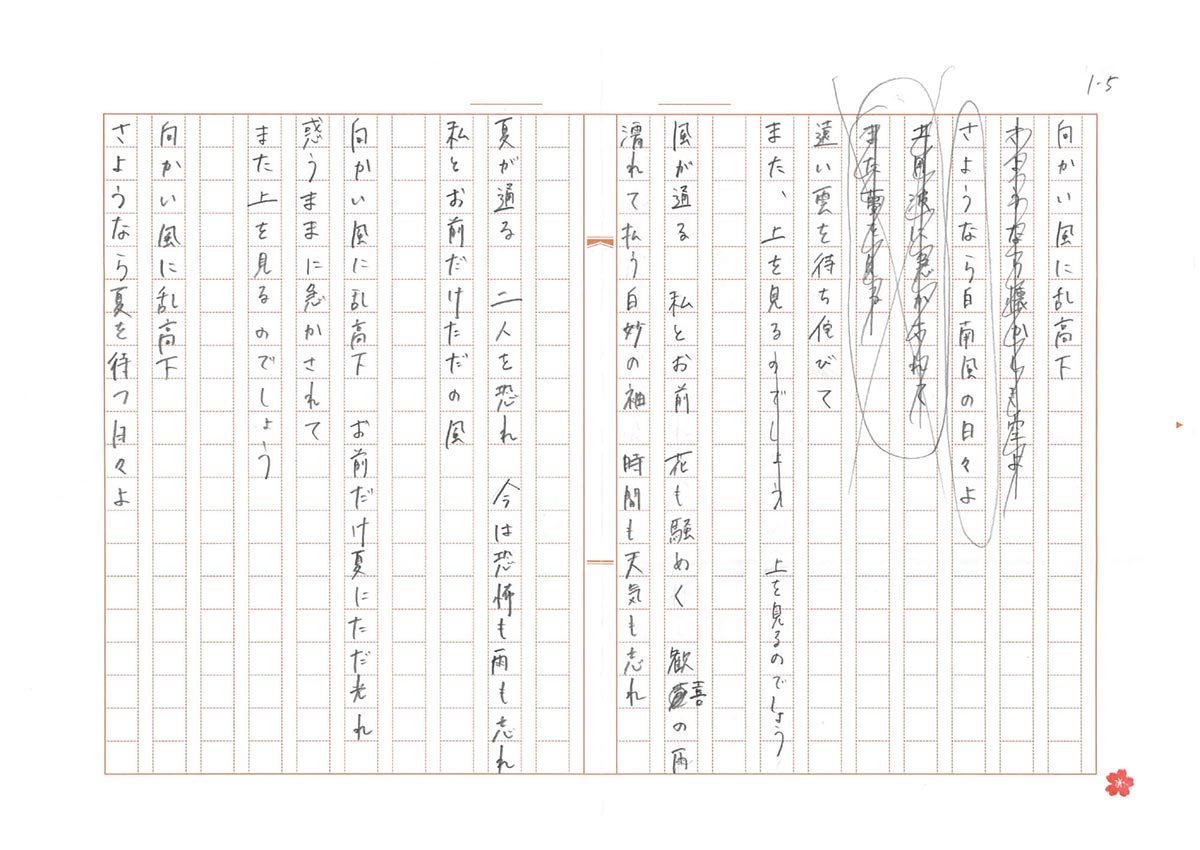 1-5
向かい風に乱高下
さようなら懐かしき空よ
さようなら白南風の日々よ
土用波に急かされて
また夢を見る
遠い雲を待ち侘びて
また、上を見るのでしょう　上を見るのでしょう
風が通る　私とお前　花も騒めく　歓喜の雨
濡れて払う白妙の袖　時間も天気も忘れ
夏が通る　二人を恐れ　今は恐怖も雨も忘れ
私とお前だけただの風
向かい風に乱高下　お前だけ夏にただ光れ
惑うままに急かされて
また上を見るのでしょう
向かい風に乱高下
さようなら夏を待つ日々よ